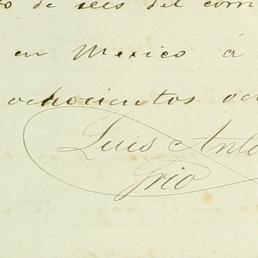 o de seis del corri
en Mexico á
ochocientos oc
Luis Anto
Frio